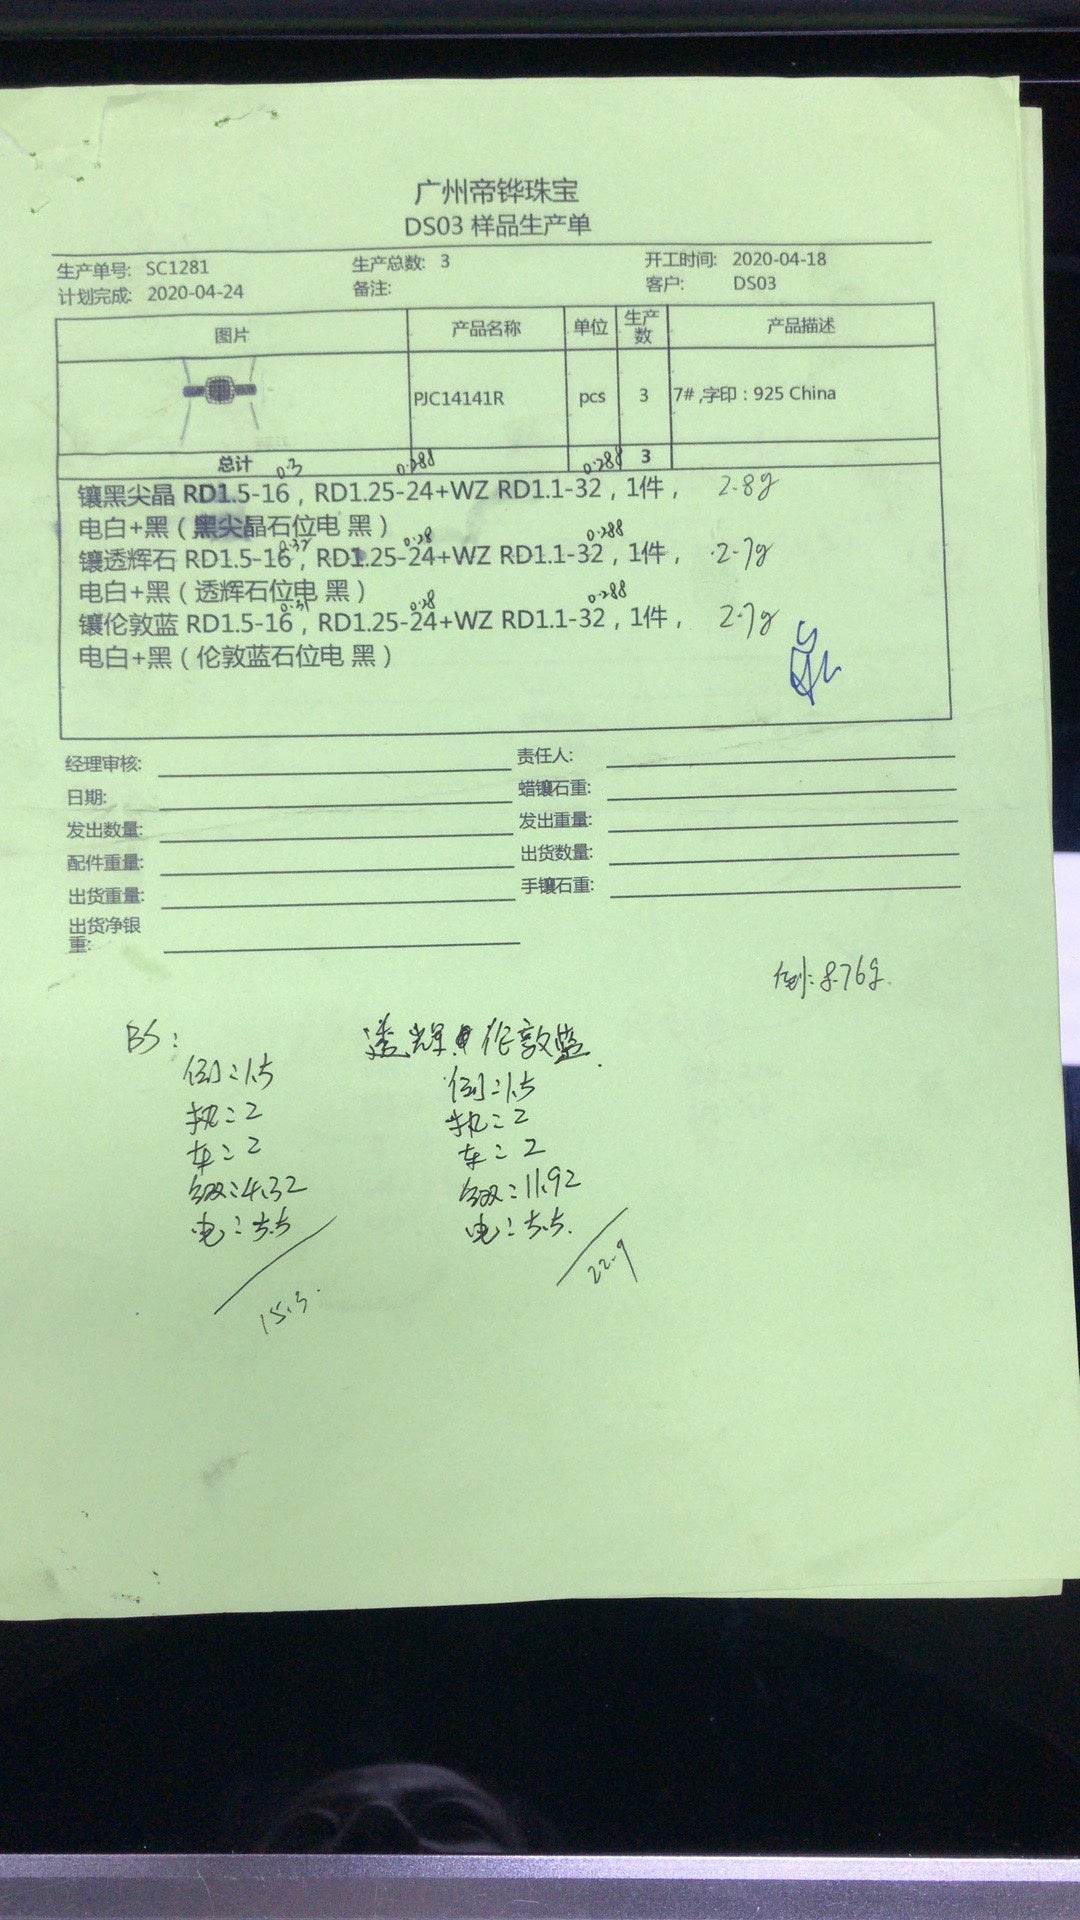 广州帝铧珠宝
DS03 样品生产单
生产单号: SC1281 生产总数: 3 开工时间: 2020-04-18
计划完成: 2020-04-24 备注: 客户: DS03
图片 产品名称 单位 生产数 产品描述
PJC14141R pcs 3 7# ,字印：925 China
总计 3
0.3 0.288 0.288
镶黑尖晶 RD1.5-16，RD1.25-24+WZ RD1.1-32，1件， 2.8g
电白+黑（黑尖晶石位电 黑）
0.37 0.28 0.288
镶透辉石 RD1.5-16，RD1.25-24+WZ RD1.1-32，1件， 2.7g
电白+黑（透辉石位电 黑）
0.31 0.28 0.288
镶伦敦蓝 RD1.5-16，RD1.25-24+WZ RD1.1-32，1件， 2.7g
电白+黑（伦敦蓝石位电 黑）
经理审核: 责任人:
日期: 蜡镶石重:
发出数量: 发出重量:
配件重量: 出货数量:
出货重量: 手镶石重:
出货净银
重:
倒: 8.76g.
BS: 透辉 伦敦蓝
倒:1.5 倒:1.5
执:2 执:2
车:2 车:2
:4.32 :11.92
电:5.5 电:5.5.
15.3. 22.9